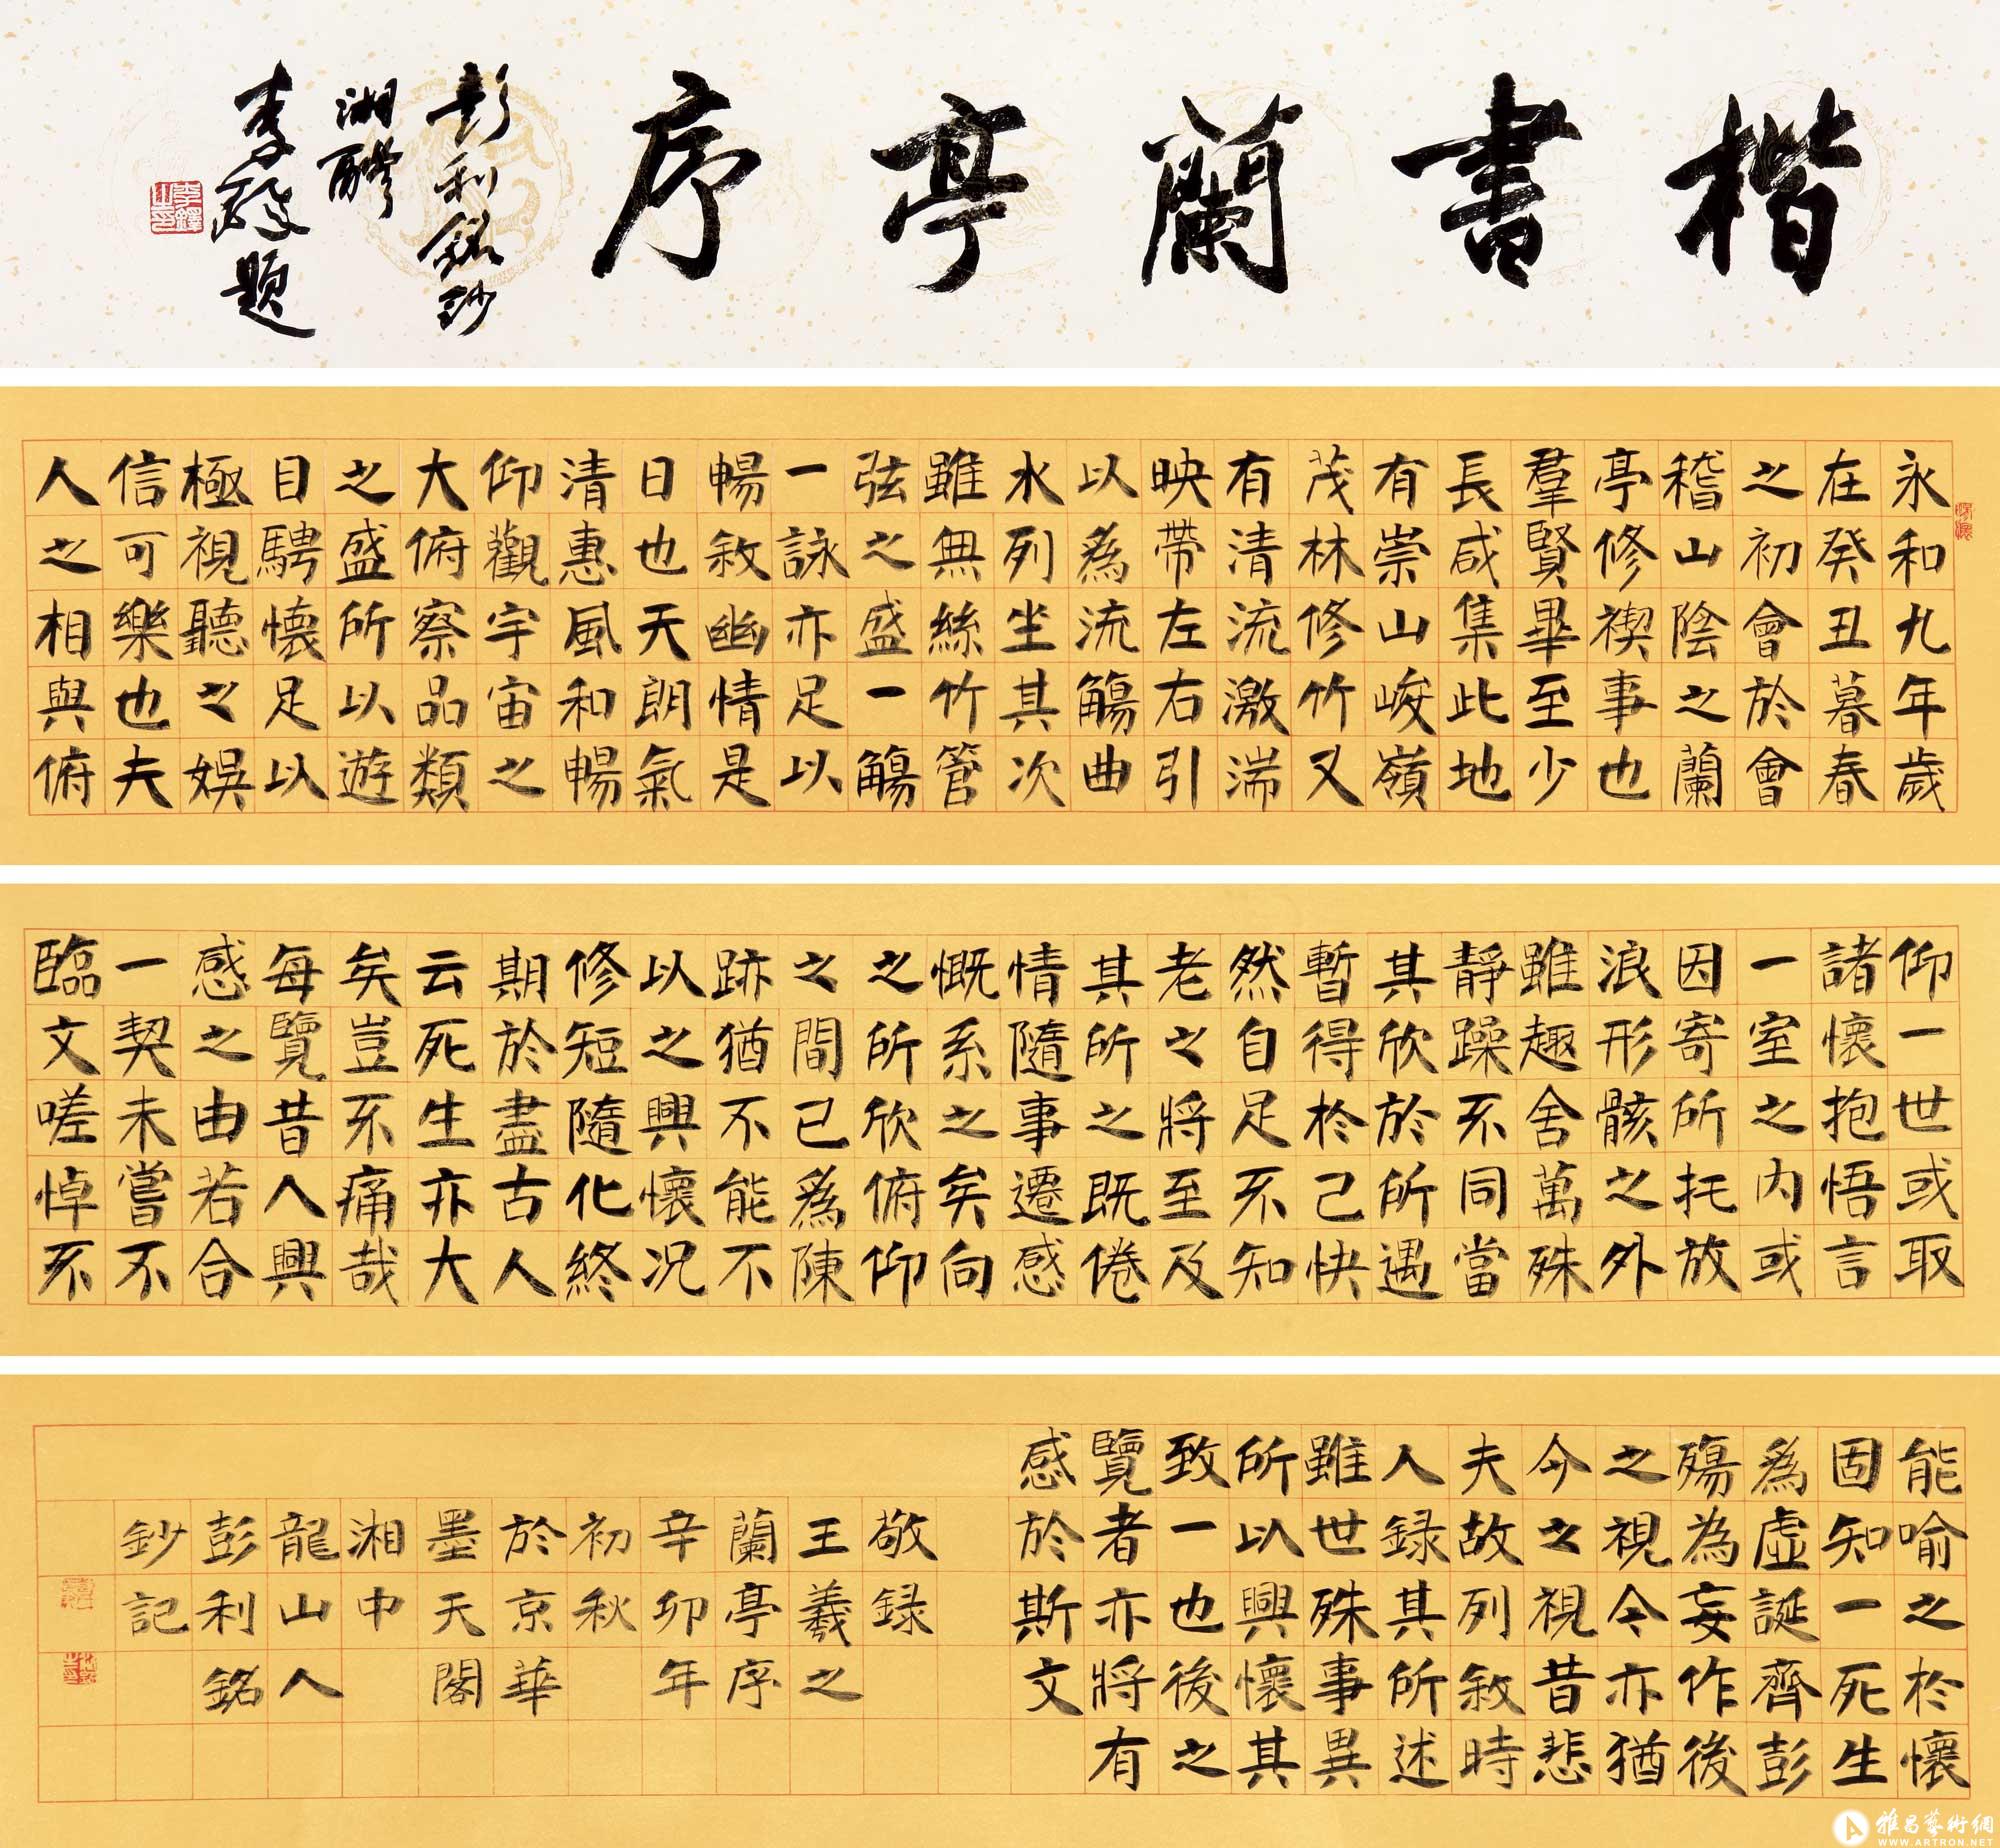 楷書蘭亭序
彭利銘鈔
湘醴
李鐸題
永和九年歲
在癸丑暮春
之初會於會
稽山陰之蘭
亭修禊事也
羣賢畢至少
長咸集此地
有崇山峻嶺
茂林修竹又
有清流激湍
映帶左右引
以為流觴曲
水列坐其次
雖無絲竹管
弦之盛一觴
一詠亦足以
暢敘幽情是
日也天朗氣
清惠風和暢
仰觀宇宙之
大俯察品類
之盛所以遊
目騁懷足以
極視聽之娛
信可樂也夫
人之相與俯
仰一世或取
諸懷抱悟言
一室之內或
因寄所托放
浪形骸之外
雖趣舍萬殊
靜躁不同當
其欣於所遇
暫得於己快
然自足不知
老之將至及
其所之既倦
情隨事遷感
慨系之矣向
之所欣俯仰
之間已為陳
跡猶不能不
以之興懷況
修短隨化終
期於盡古人
云死生亦大
矣豈不痛哉
每覽昔人興
感之由若合
一契未嘗不
臨文嗟悼不
能喻之於懷
固知一死生
為虛誕齊彭
殤為妄作後
之視今亦猶
今之視昔悲
夫故列敘時
人録其所述
雖世殊事異
所以興懷其
致一也後之
覽者亦將有
感於斯文
敬録
王羲之
蘭亭序
辛卯年
初秋
於京華
墨天閣
湘中
龍山人
彭利銘
鈔記
雅昌藝術網
WWW.ARTRON.NET